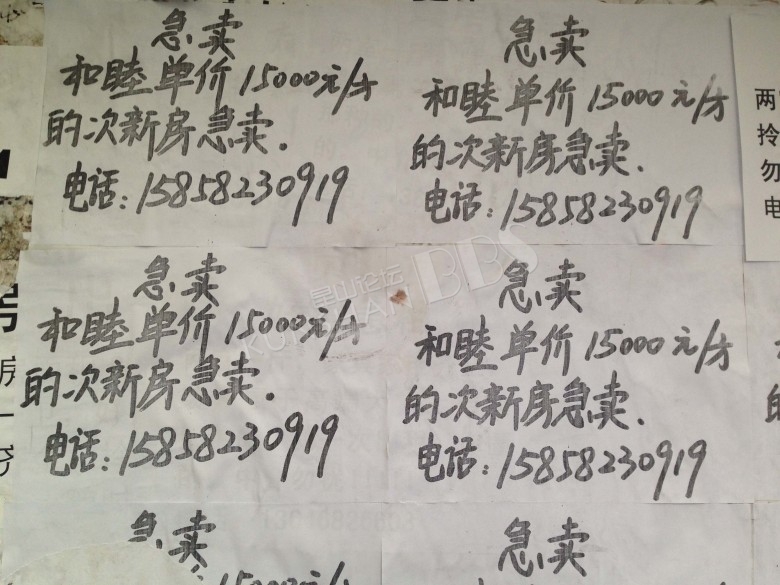 急卖
和睦单价15000元/方
的次新房急卖.
电话:15858230919
急卖
和睦单价15000元/方
的次新房急卖.
电话:15858230919
急卖
和睦单价15000元/方
的次新房急卖.
电话:15858230919
急卖
和睦单价15000元/方
的次新房急卖.
电话:15858230919
急卖
15000元/
急卖
和睦单价15000元/方
两
拎
勿
电
的
昆山论坛
KUNSHAN BBS